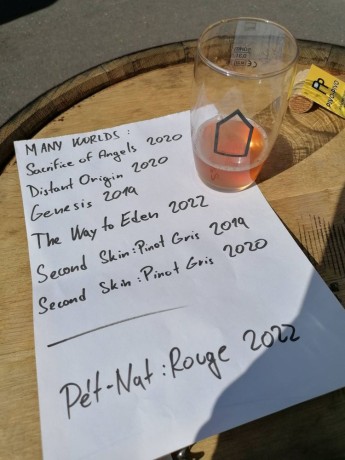 MANY WORLDS:
Sacrifice of Angels 2020
Distant Origin 2020
Genesis 2019
The Way to Eden 2022
Second Skin: Pinot Gris 2019
Second Skin: Pinot Gris 2020
Pét-Nat: Rouge 2022